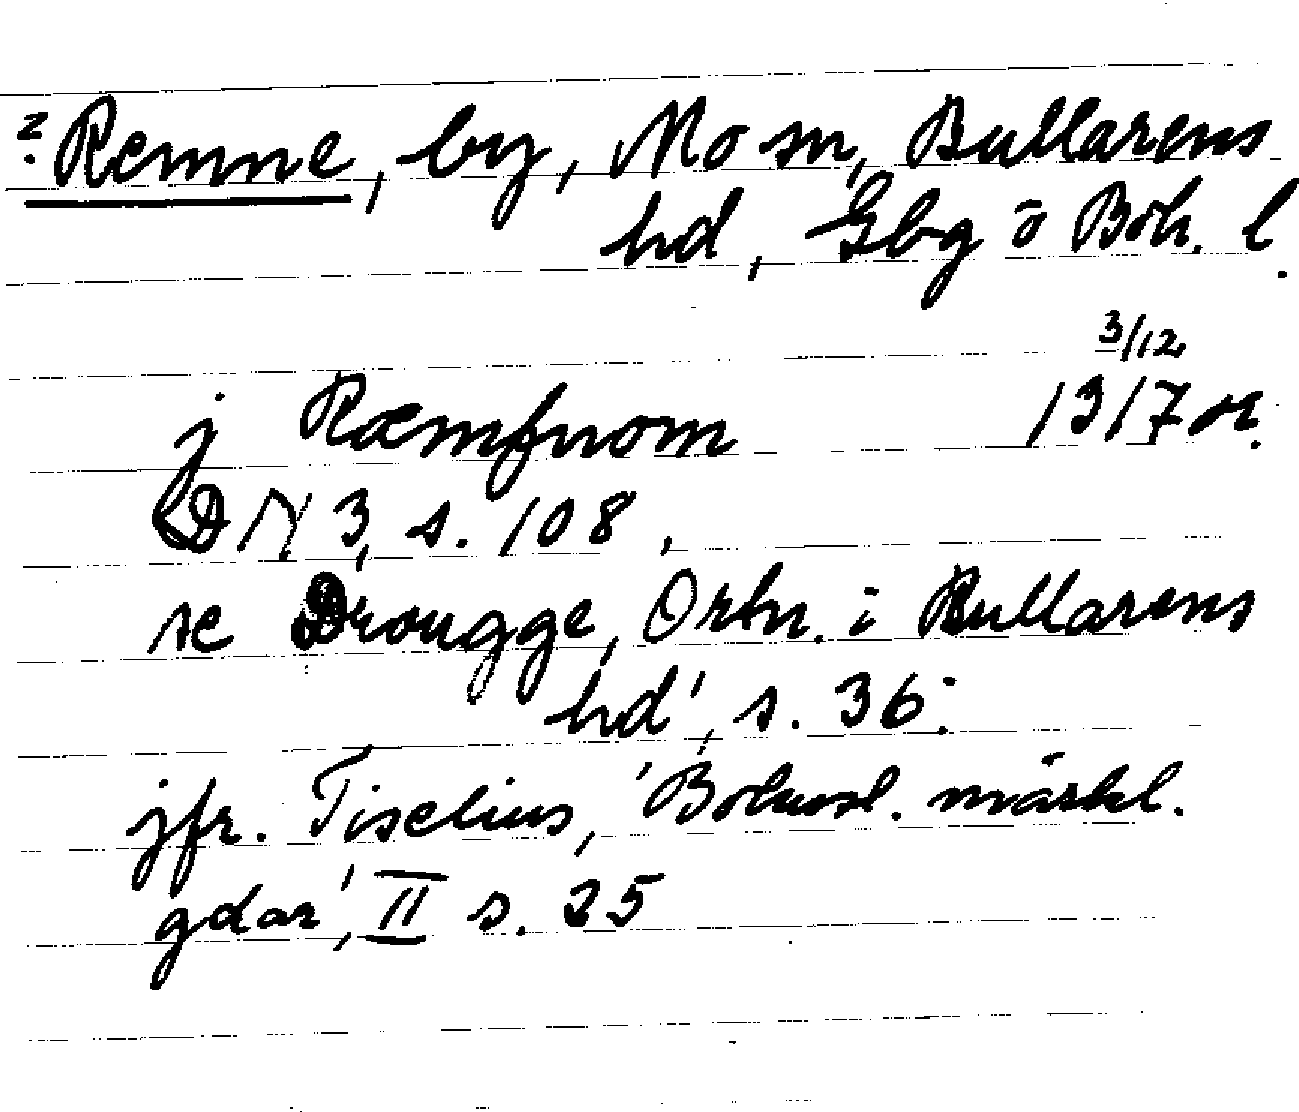 ? Remne, by, Mo sn, Bullarens
hd, Gbg o Boh. l.
3/12
j Ræmfnom 1317 or.
DN 3, s. 108,
se Drougge, Ortn. i Bullarens
hd', s. 36.
jfr. Tiselius, 'Bohusl. märkl.
gdar', II s. 25